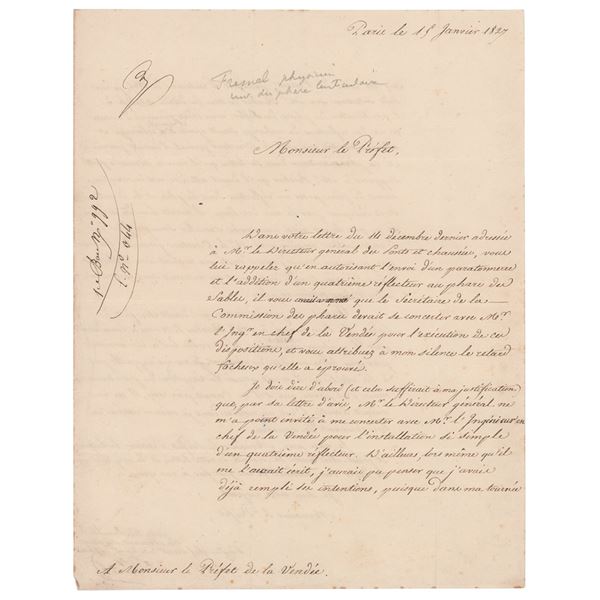 Paris le 15 Janvier 1827
Fresnel physicien
inv. du phare lenticulaire
Monsieur le Préfet,
1re Bau No 992
No 644
Dans votre lettre du 14 décembre dernier adressée
à Mr. le Directeur général des Ponts et chaussées, vous
lui rappelez qu'en autorisant l'envoi d'un paratonnerre
et l'addition d'un quatrième réflecteur au phare des
Sables, il vous que le Secrétaire de la
Commission des phares devait se concerter avec Mr.
l'Ingr. en chef de la Vendée pour l'exécution de ces
dispositions, et vous attribuez à mon silence le retard
fâcheux qu'elle a éprouvé.
Je dois dire d'abord (et cela suffirait à ma justification)
que, par sa lettre d'avis, Mr. le Directeur général ne
m'a point invité à me concerter avec Mr. l'Ingénieur en
chef de la Vendée pour l'installation si simple
d'un quatrième réflecteur. D'ailleurs, lors même qu'il
me l'aurait écrit, j'aurais pu penser que j'avais
déjà rempli ses intentions, puisque dans ma tournée
A Monsieur le Préfet de la Vendée.